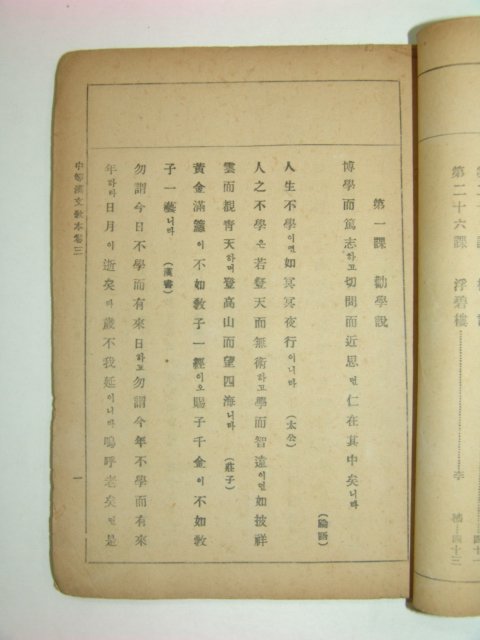 第二十六課 浮碧樓……李 穡…四十三
第一課 勸學說
博學而篤志하고切問而近思면仁在其中矣니라
(論語)
人生不學이면如冥冥夜行이니라 (太公)
人之不學은若登天而無術하고學而智遠이면如披祥
雲而覩靑天하며登高山而望四海니라 (莊子)
黃金滿籯이不如敎子一經이오賜子千金이不如敎
子一藝니라 (漢書)
勿謂今日不學而有來日하고勿謂今年不學而有來
年하라日月이逝矣라歲不我延이니라嗚呼老矣면是
中等漢文敎本卷三
一